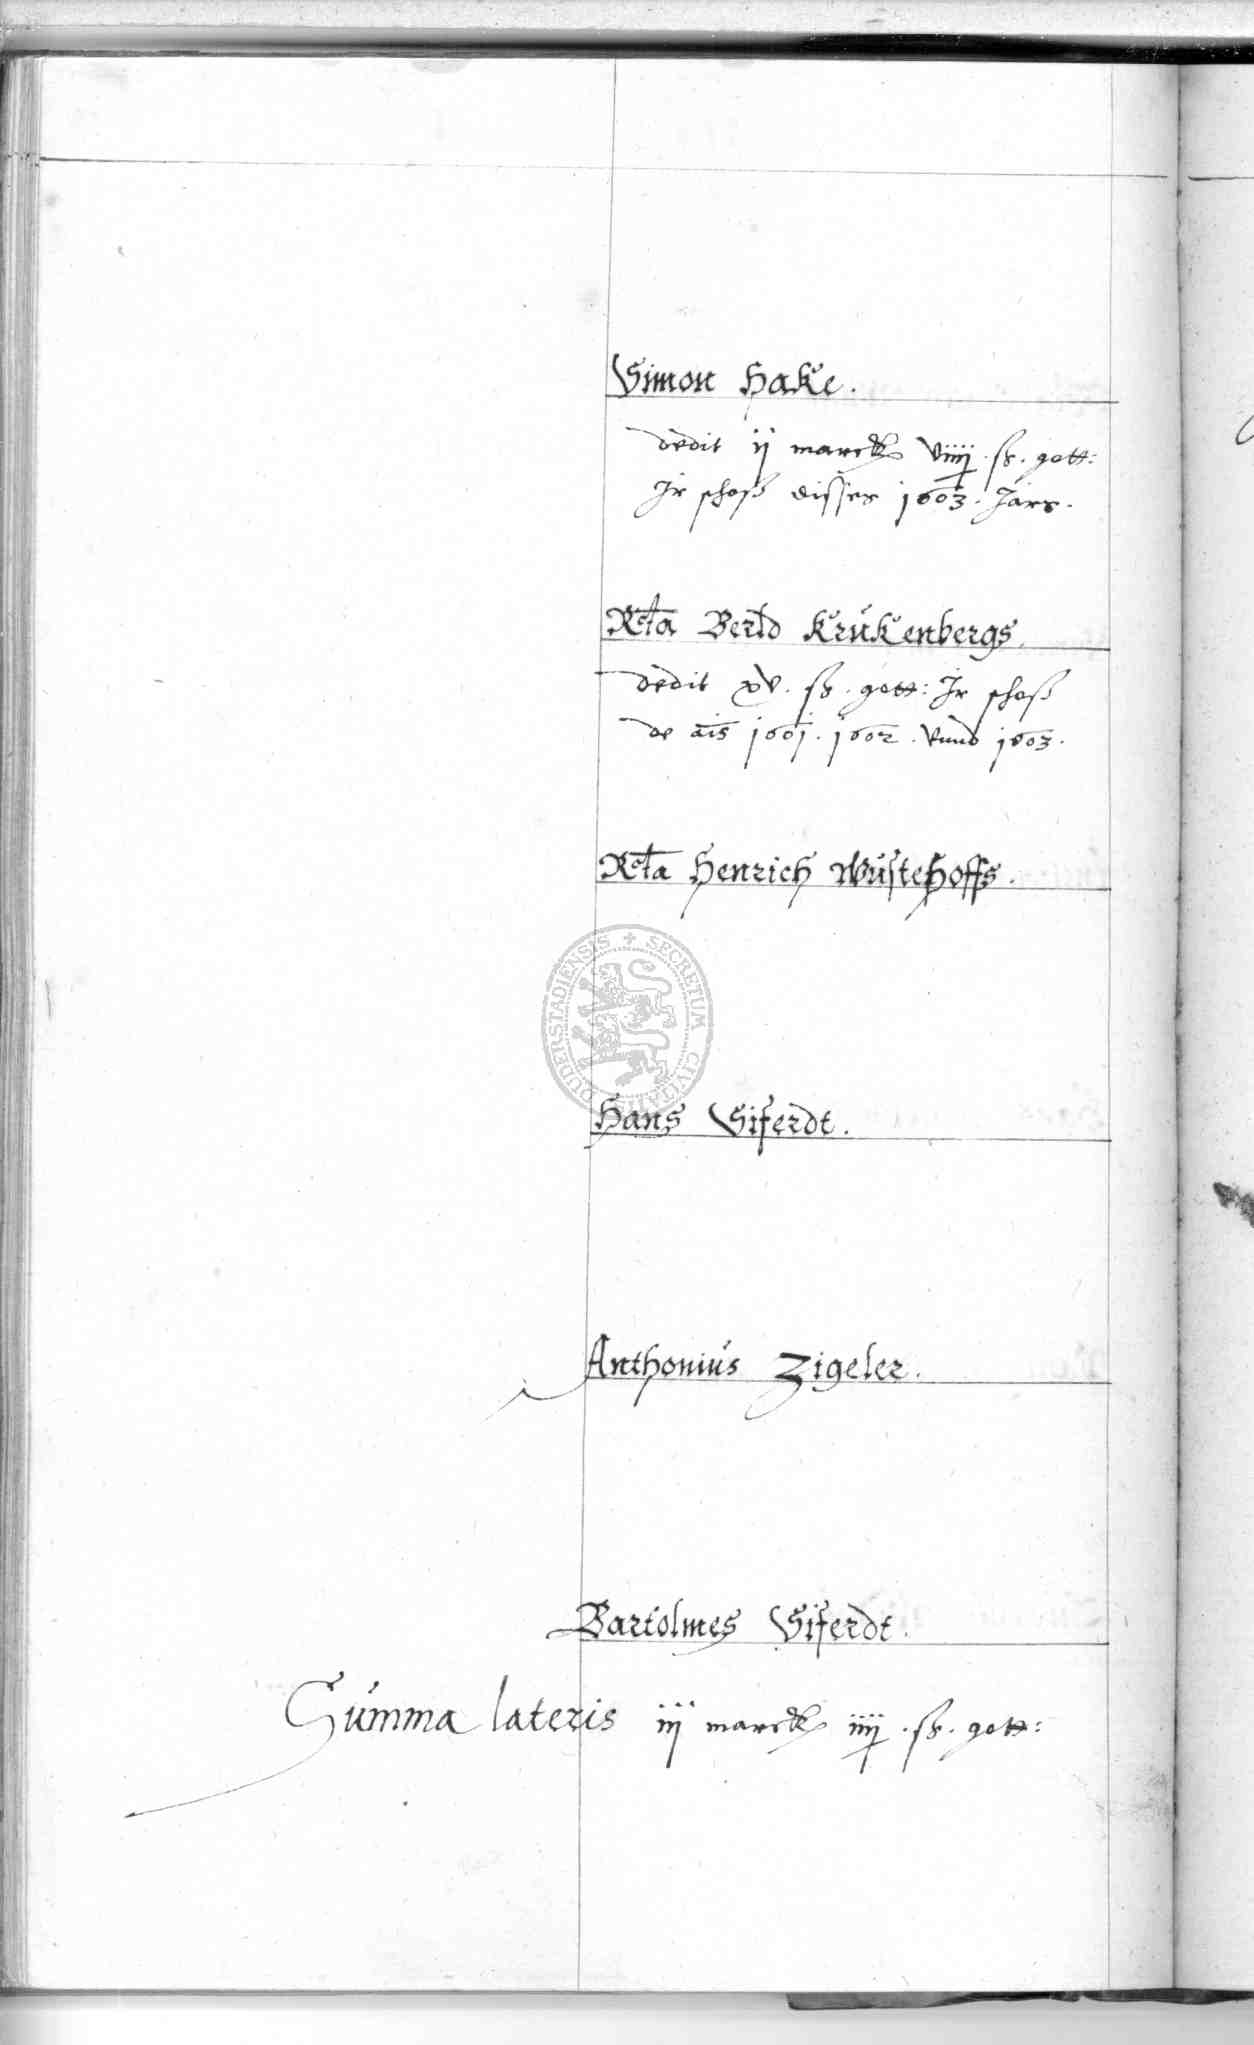 Simon Hake.
dedit ij marck viiij. ß. gott:
Jr schoß disses 1603. Jars.
Rcta Bertd Krukenbergs.
dedit xv. ß. gott: Jr schoß
de ais 1601. 1602. vnnd 1603.
Rcta Henrich Wustehoffs.
SECRETUM CIVITATIS DUDERSTADIENSIS
Hans Siferdt.
Anthonius Zigeler.
Bartolmes Siferdt.
Summa lateris iij marck iiij. ß. gott: